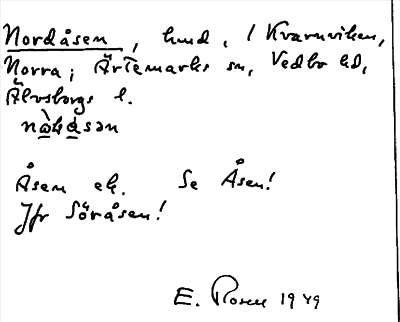 Nordåsen, hmd, i Kvarnviken,
Norra; Ärtemarks sn, Vedbo hd,
Älvsborgs l.
Åsen ek. Se Åsen!
Jfr Söråsen!
E. Rosell 1949